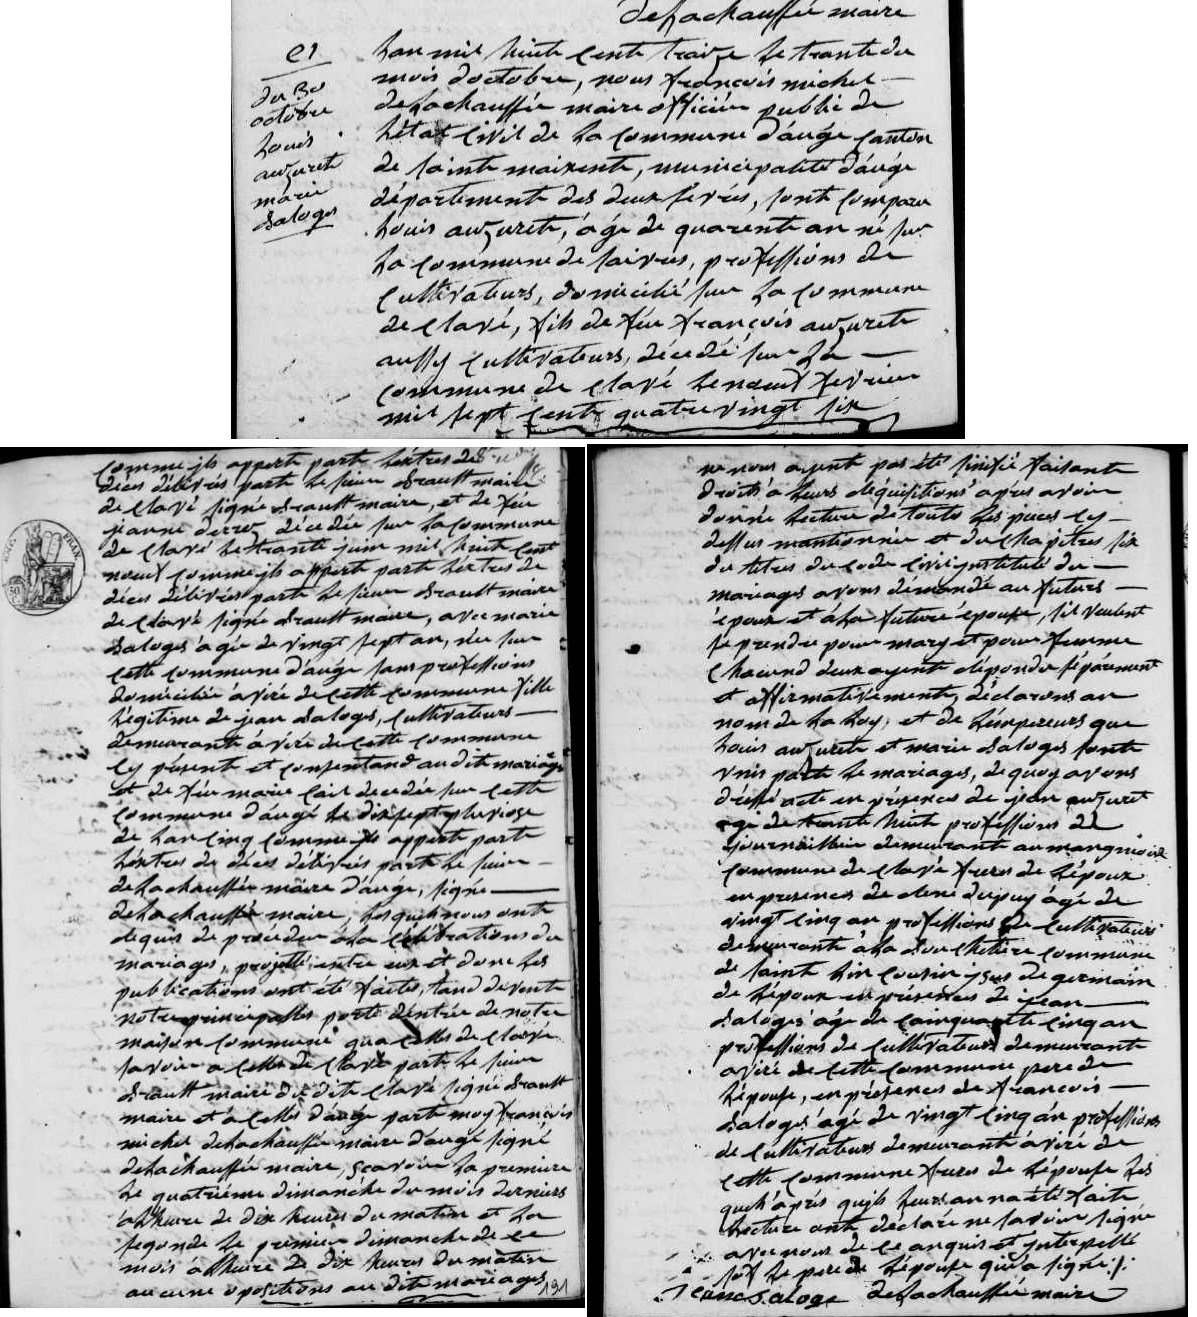 deLachauffée maire
e1
du 30
octobre
Louis
auzuret
marie
Saloges
Lan mil huite cents traize Le trante du
mois doctobre, nous françois michel
deLachauffée maire officiée public de
Létat Civil de La Commune daugé Canton
de sainte maixente, municipalité daugé
département des deux sevres, sont Comparu
Louis auzurete, agé de quarente an né sur
La Commune de saivres, professions de
Cultivateurs, domicilié sur La Commune
de Clavé, fils de feu françois auzurete
aussy Cultivateurs, décedé sur La
Commune de Clavé Le neuf fevrier
mil sept Cents quatre vingt six
Comme jls apperte parte Lextres de
déces délivrés parte Le sieur Drault maire
de Clavé signé Drault maire, et de feu
jeanne décedée sur La Commune
de Clavé Le trante juin mil huite Cent
neuf Comme jls apperte parte Lextres de
déces délivrés parte Le sieur Drault maire
de Clavé signé Drault maire, avec marie
Saloges agée de vingt sept an, née sur
Cette Commune daugé sans professions
domiciliée à viré de Cette Commune fille
Légitime de jean Saloges, Cultivateurs
demeurante à viré de Cette Commune
Cy présent et Consentand au dit mariage
et de feu marie décedée sur Cette
Commune daugé Le dix sept pluviose
de Lan Cinq Comme jls apperte parte
Lextres de déces délivrés parte Le sieur
deLachauffée maire daugé, signé
deLachauffée maire, Lesquels nous onte
requis de procéder à La Célébrations du
mariages, projetté entre eux et donc Les
publications ont été faites, tand devente
notre principalles porte dentrée de notre
maison Commune qua Celles de Clavé
savoir a Celles de Clavé parte Le sieur
Drault maire du dite Clavé signé Drault
maire et à Celles daugé parte moy françois
michel deLachauffée maire daugé signé
deLachauffée maire, sçavoir La premiere
Le quatriéme dimanche du mois derniers
a Lheure de dix heures du matin et La
segonde Le premier dimanche de ce
mois a Lheure de dix heures du matin
aucune opositions au dite mariages
191
ne nous ayent pas été sinifié faisante
droits à Leurs réquisitions après avoir
donné Lecture de toute Les pieces Cy
dessus mantionnée et du Chapitres six
du titres du Code Civil jnstitulé du
mariages avons démandé au futurs
époux et à La future épouse, sil veulent
se prendre pour mary et pour femme
Chacund deux ayent répondu séparément
et affirmativement, déclarons au
nom de La Loy, et de Lempereurs que
Louis auzurete et marie Saloges sonte
unis parte Le mariages, de quoy avons
dréssé acte en présences de jean auzuret
agé de trante huite professions de
journaillier demeurant au
Commune de Clavé frere de Lépoux
en presences de réné dupuy agé de
vingt Cinq an professions de Cultivateurs
demeurante à La Commune
de sainte Lin Cousin de germain
de Lépoux en présences de jean
Saloges agé de Cainquante Cinq an
professions de Cultivateurs demeurante
a viré de Cette Commune pere de
Lépouse, en présences de françois
Saloges agé de vingt Cinq an professions
de Cultivateurs demeurante à viré de
Cette Commune frere de Lépouse Les
quels après quejls Leurs an na été faite
Lecture onte déclaré ne savoir signé
avec nous de Ce anquis et jnterpellé
sof Le pere de Lépouse qui a signé
Jean Saloge deLachauffée maire